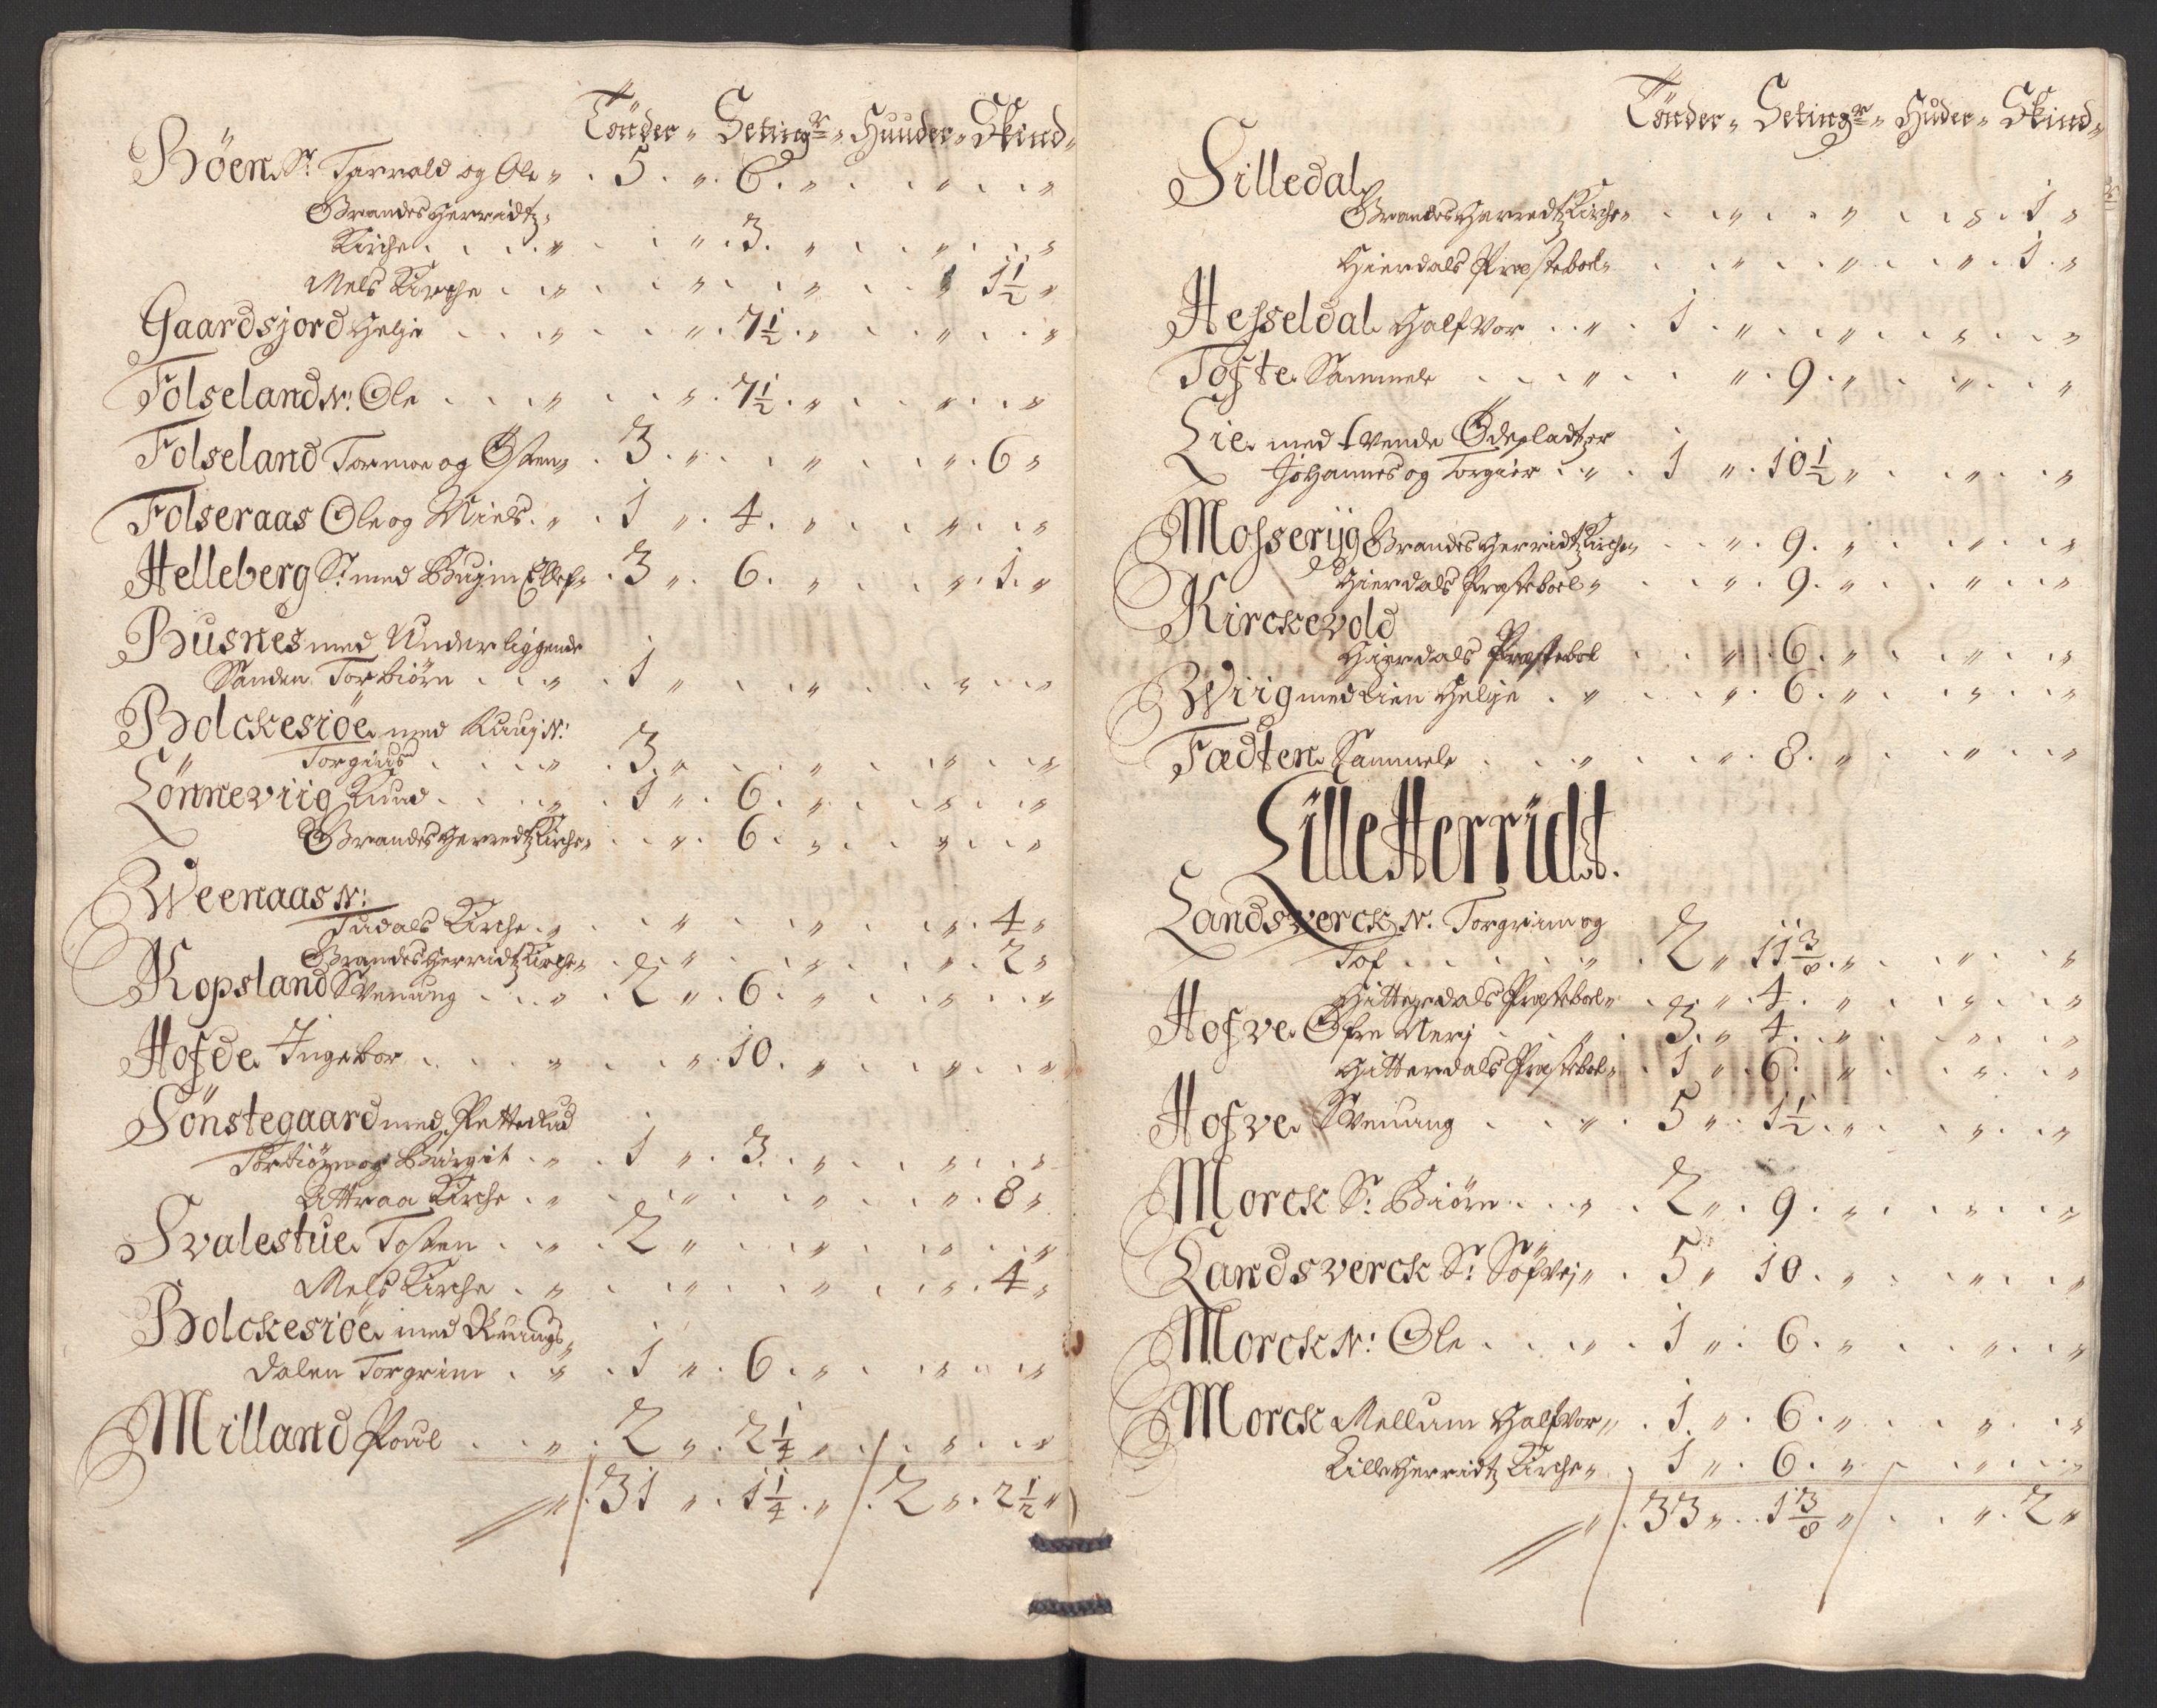 Tönder „ Setingr „ Huuder „ Skind „
Böen Sr. Tarvald og Ole „ 5 „ 6 „ „ „
Grandesherridtz
Kirche „ „ 3 „ „ „
Mels Kirche „ „ „ „ 1 1/2 „
Gaardsjord Helje „ „ 7 1/2 „ „ „
Folseland N: Ole „ „ 7 1/2 „ „ „
Folseland Tormoe og Østen „ 3 „ „ „ 6 „
Folseraas Ole og Niels „ 1 „ 4 „ „ „
Helleberg Sr. med Bugin Ellef „ 3 „ 6 „ „ 1 „
Busnes med Underliggende
Sanden Torbiörn „ 1 „ „ „ „
Bolckesiöe med Ruuj N:
Torgius „ 3 „ „ „ „
Lönneviig Knud „ 1 „ 6 „ „ „
Grandesherredtz Kirche „ „ 6 „ „ „
Weenaas N:
Tudals Kirche „ „ „ „ 4 „
Grandesherridtz Kirche „ „ „ „ 2 „
Kopsland Svenung „ 2 „ 6 „ „ „
Hofde Ingebor „ „ 10 „ „ „
Sönstegaard med Petterlud
Torbiörn og Birgit „ 1 „ 3 „ „ „
Attraa Kirche „ „ „ „ 8 „
Svalestue Tosten „ 2 „ „ „ „
Mels Kirche „ „ „ „ 4 „
Bolckesiöe med Ruungs
dalen Torgrim „ 1 „ 6 „ „ „
Milland Poul „ 2 „ 2 1/4 „ „ „
„ 31 „ 1 1/4 „ 2 „ 2 1/2 „
Tönder „ Setingr „ Huder „ Skind „
Silledal
Grandesherredtz Kirche „ „ „ „ 1 „
Hierdals Præstebol „ „ „ „ 1 „
Hesseldal Halfvor „ 1 „ „ „ „
Tofte Sammele „ „ 9 „ „ „
Lie med tvende Ödepladtzer
Johannes og Torgier „ 1 „ 10 1/2 „ „ „
Mosserijg Grandesherridtz Kirche „ „ 9 „ „ „
Hierdals Præsteboel „ „ 9 „ „ „
Kirckevold
Hierdals Præstebol „ 6 „ „ „
Wiig med Lien Helje „ „ 6 „ „ „
Fædten Sammele „ „ 8 „ „ „
Lille Herridt.
Landsverck N. Torgrim og
Tof „ 2 „ 11 3/8 „ „ „
Hitterdals Præstebol „ „ 4 „ „ „
Hofve Øfre Nerj „ 3 „ 4 „ „ „
Hitterdals Præstebol „ 1 „ 6 „ „ „
Hofve Svenung „ 5 „ 1 1/2 „ „ „
Morck Sr. Biörn „ 2 „ 9 „ „ „
Landsverck Sr. Söfvej „ 5 „ 10 „ „ „
Morck N: Ole „ 1 „ 6 „ „ „
Morck Mellum Halfvor „ 1 „ 6 „ „ „
Lilleherridtz Kirche „ 1 „ 6 „ „ „
„ 33 „ 1 3/8 „ „ 2 „